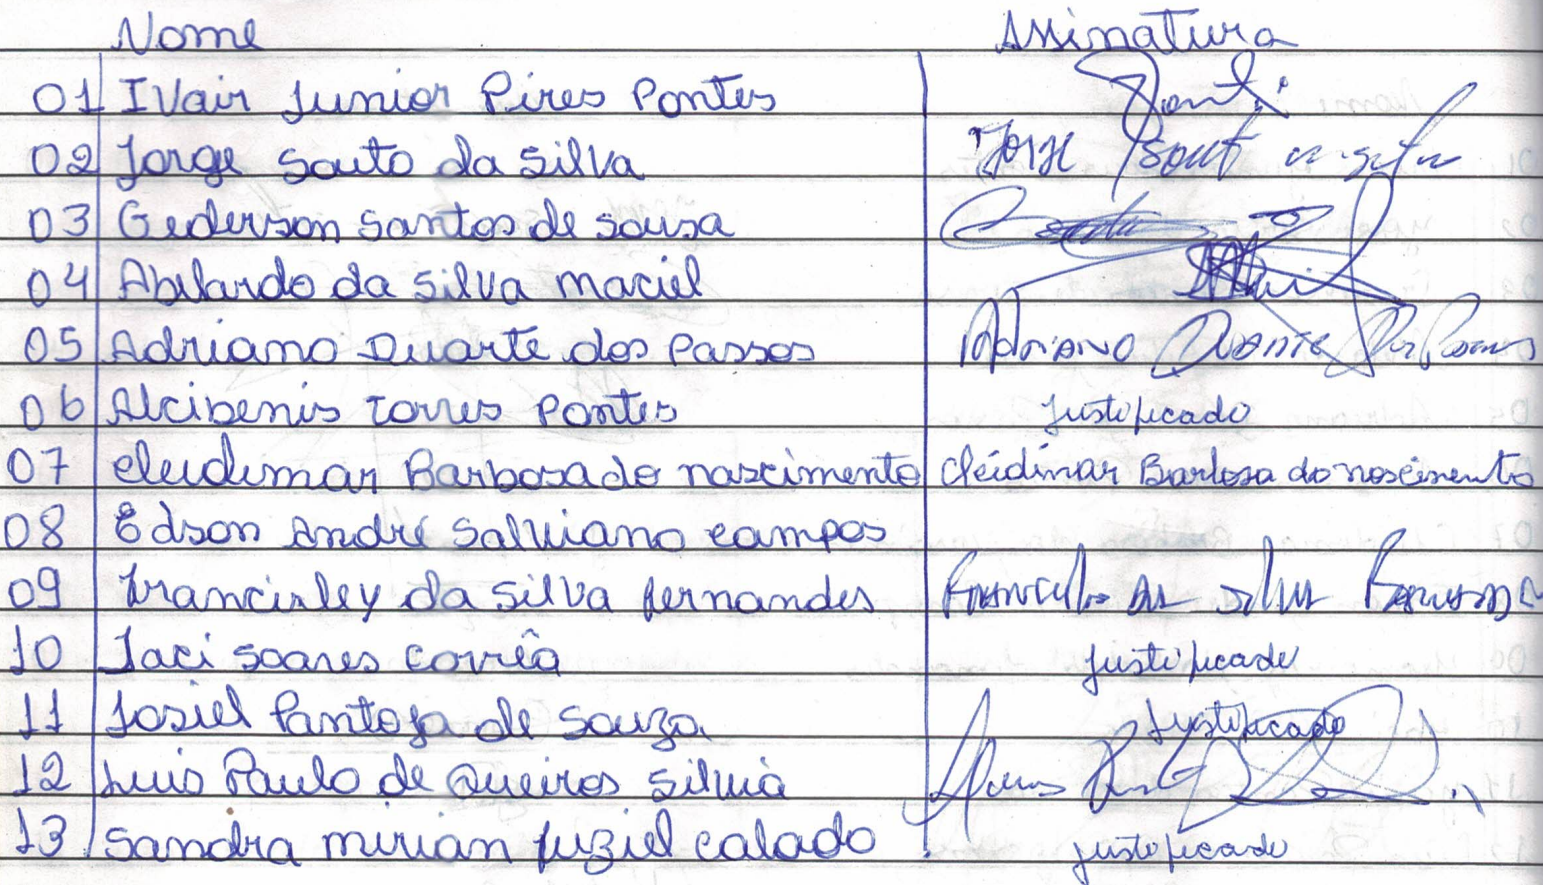 Nome Assinatura
01 IVair Junior Pires Pontes
02 Jorge Souto da Silva Jorge
03 Gederson Santos de Sousa
04 Abelardo da Silva maciel
05 Adriano Duarte dos Passos Adriano Duarte dos Passos
06 Alcibenis Torres Pontes Justificado
07 cleidimar Barbosa do nascimento Cleidimar Barbosa do nascimento
08 Edson André Salviano campos
09 Francisley da Silva fernandes
10 Jaci soares corrêa justificado
11 Josiel Pantoja de Souza Justificado
12 Luis Paulo de Queiros Silvia
13 Sandra mirian fuziel calado justificado